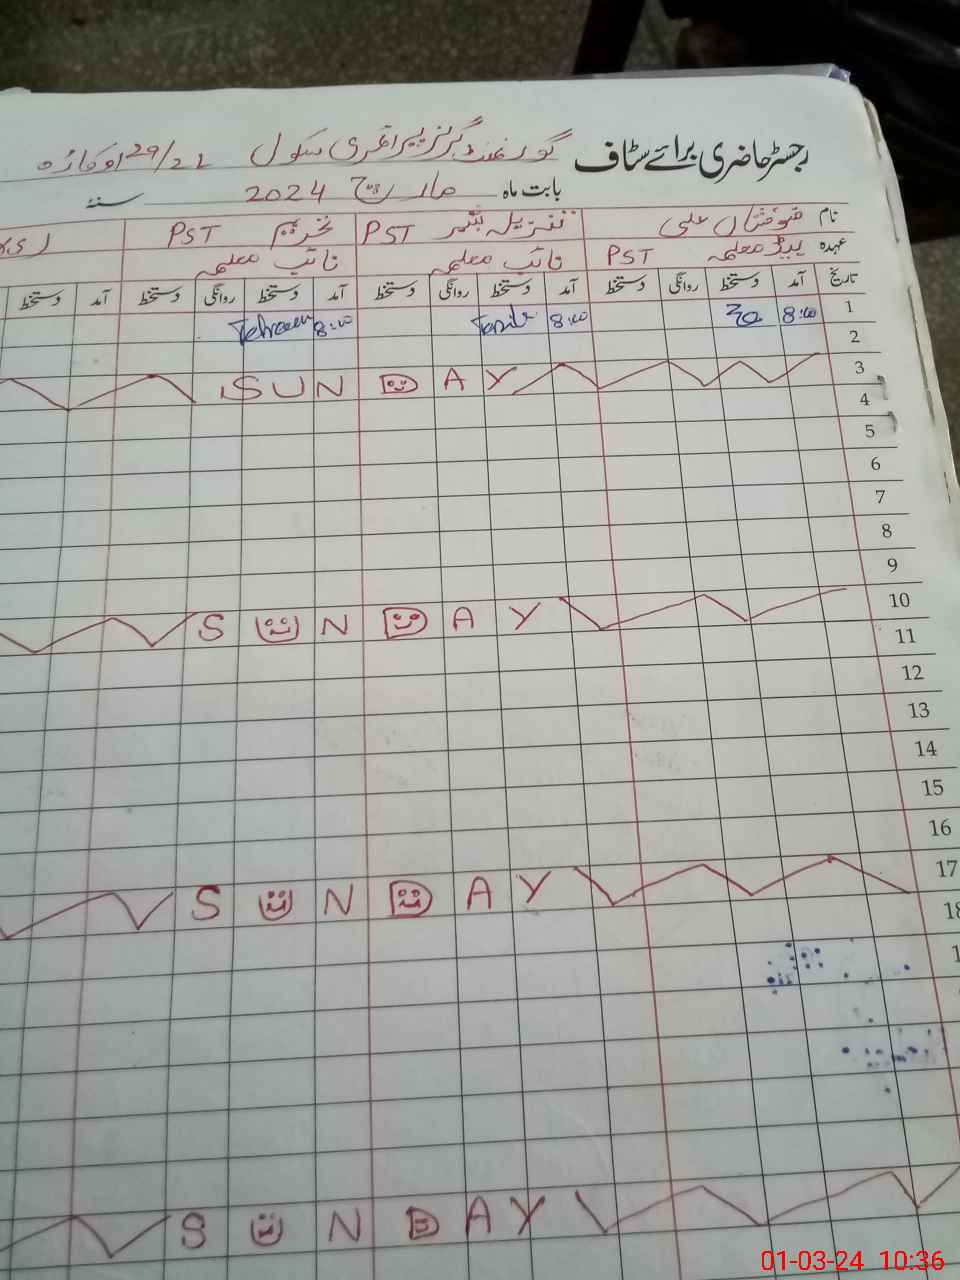 رجسٹر حاضری برائے سٹاف گورنمنٹ گرلز پرائمری سکول 29/2L اوکاڑہ
بابت ماہ مارچ 2024 سنہ
نام
عہدہ لیڈ معلمہ PST
نائب معلمہ
نائب معلمہ
تنزیلہ PST
تحریم PST
تاریخ آمد دستخط روانگی دستخط آمد دستخط روانگی دستخط آمد دستخط روانگی دستخط آمد دستخط
1 8:00 8:00 8:00 Tehreem
2
3 SUNDAY
4
5
6
7
8
9
10 SUNDAY
11
12
13
14
15
16
17 SUNDAY
18
SUNDAY
01-03-24 10:36